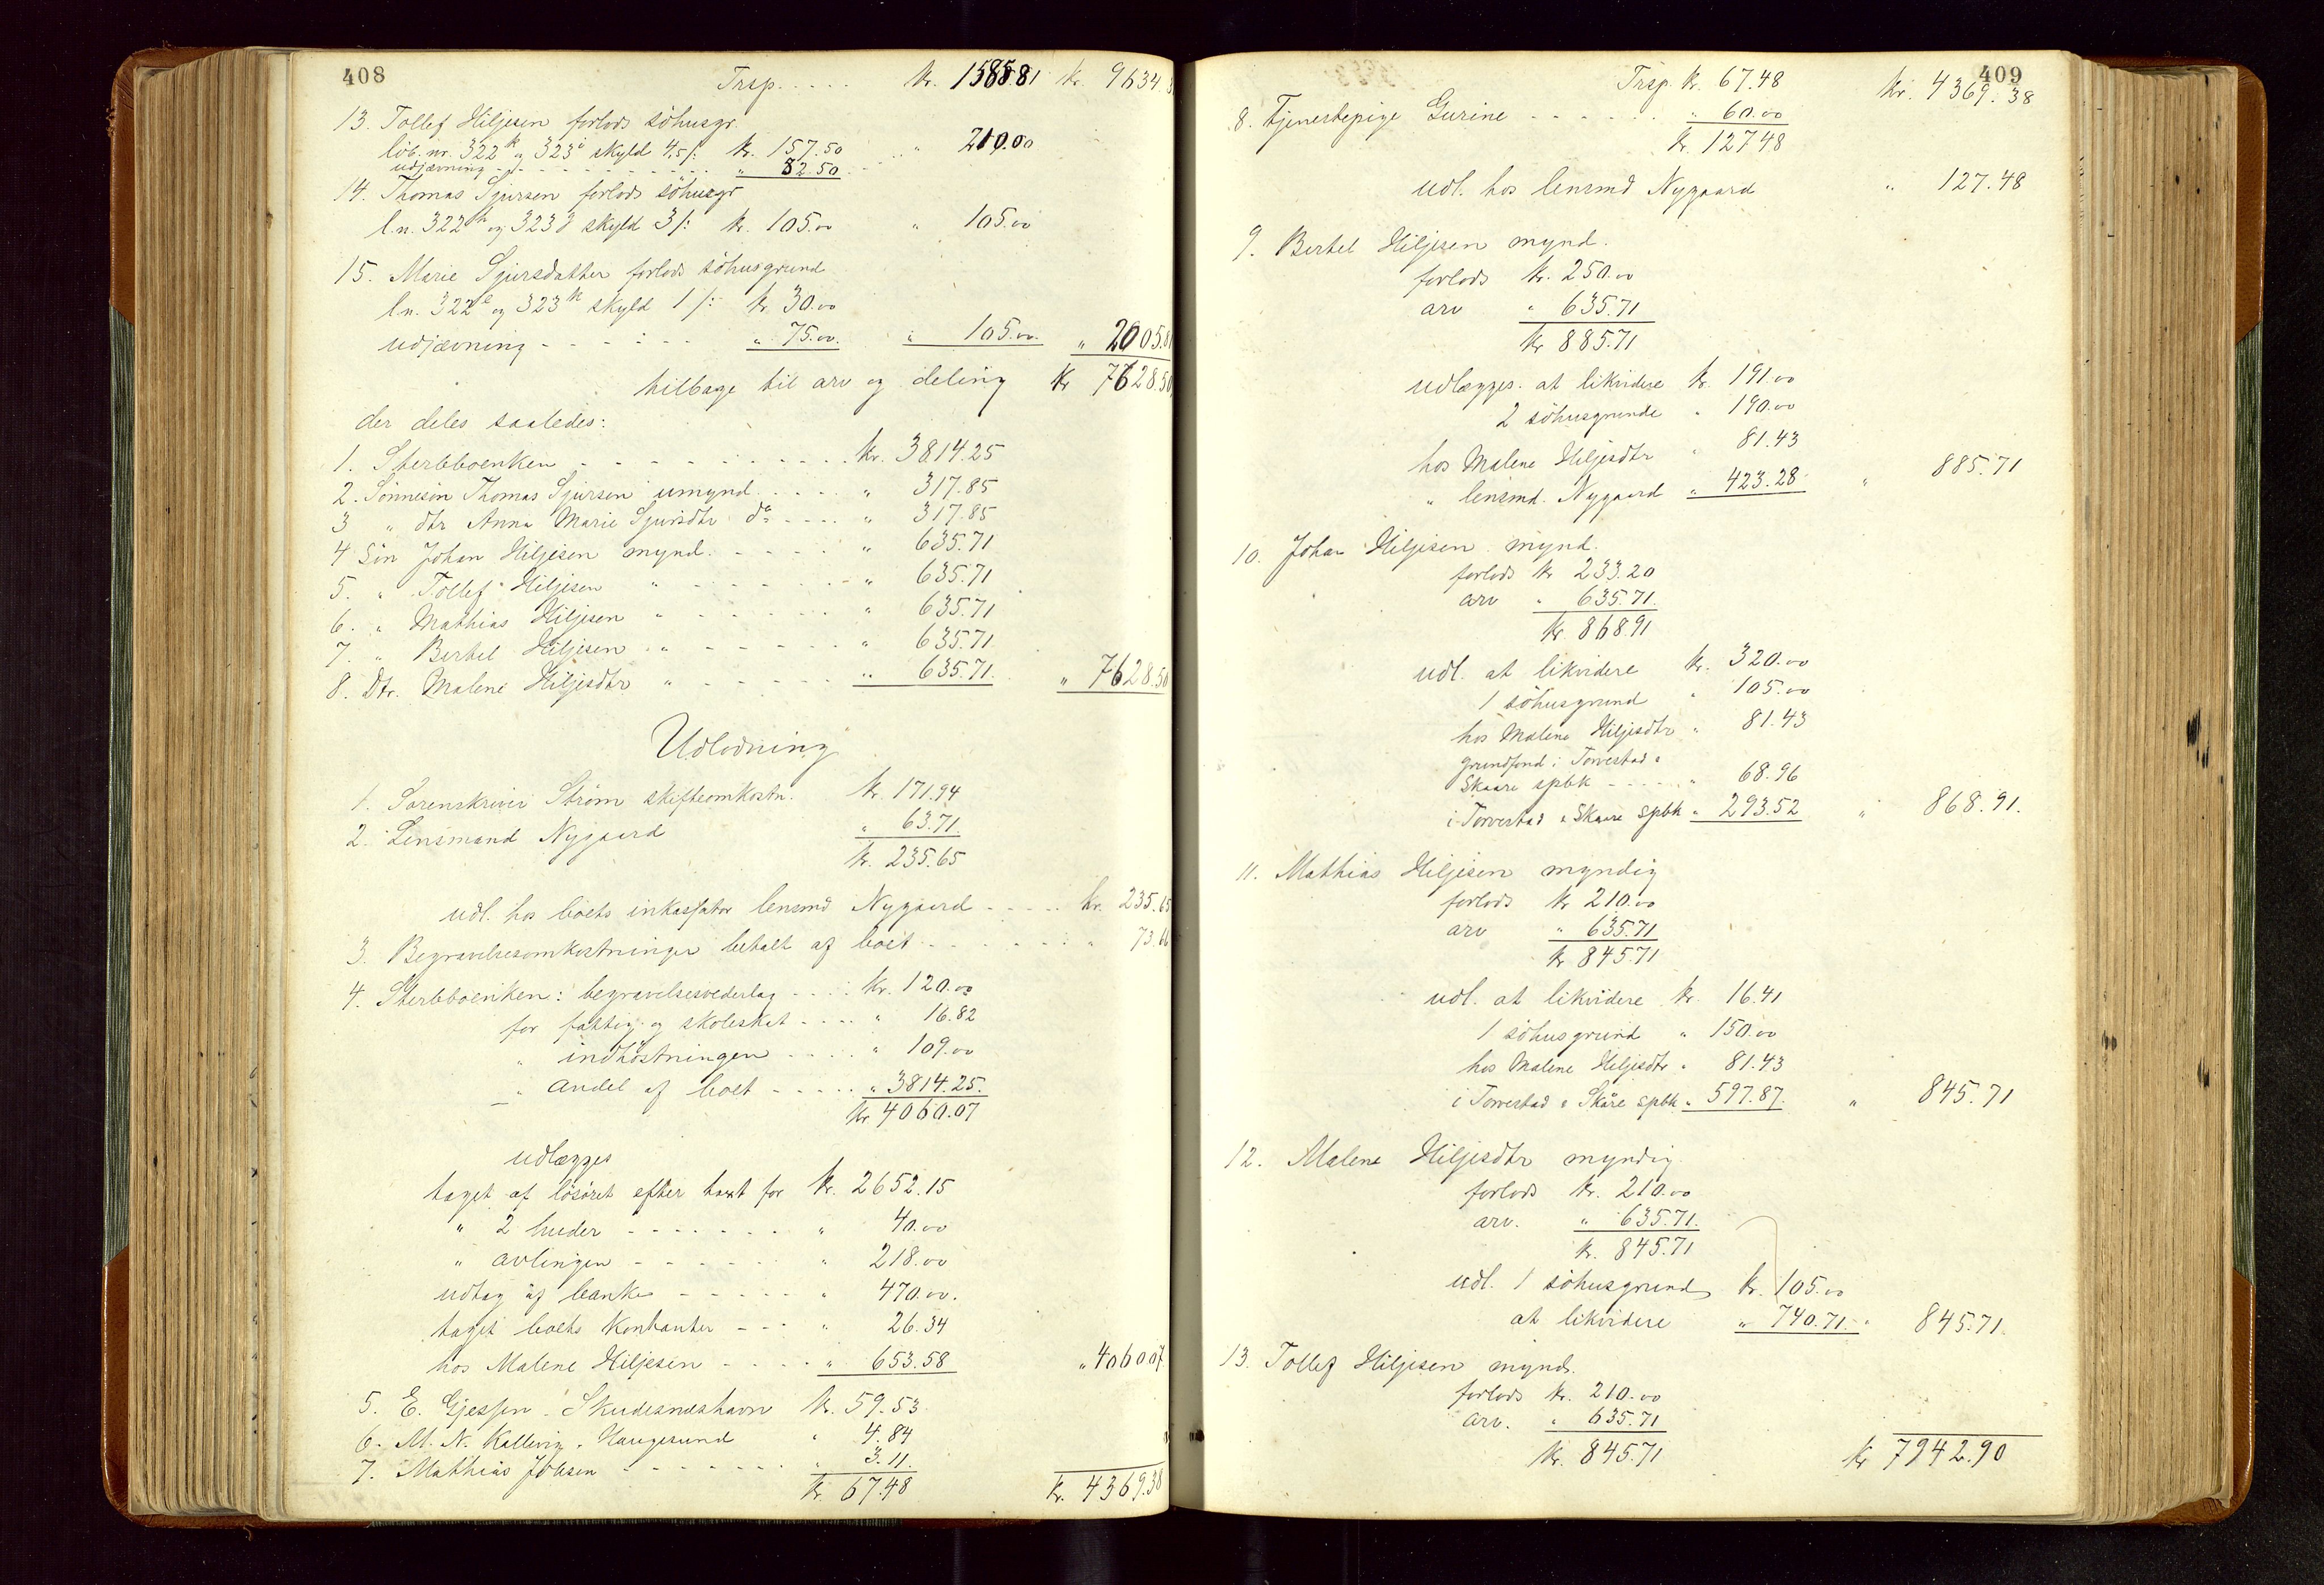 408
Trsp. . . . . kr. 1585.81 kr. 9634.
13. Tollef Hiljesen forlods söhusgr.
löb. nr. 322k og 323i skyld 4,5/: kr. 157.50 " 210.00
udjævning - - - - - - - - " 52.50
14. Thomas Sjursen forlods söhusgr
l.n. 322h og 323 skyld 3/: kr. 105.00 " 105.00
15. Marie Sjursdatter forlods söhusgrund
l.n. 322l og 323k skyld 1/: kr. 30.00
udjævning - - - - - - " 75.00. " 105.00. " 2005.81
tilbage til arv og deling kr 7628.50
der deles saaledes:
1. Sterbboenken - - - - - - - - kr. 3814.25
2. Sönnesön Thomas Sjursen umynd. . . . . " 317.85
3 " dtr Anna Marie Sjursdtr do - . . . " 317.85
4 Sön Johan Hiljesen mynd. - - - - - " 635.71
5. " Tollef Hiljesen " - - - - - - " 635.71
6. " Mathias Hiljesen " - - - - - - " 635.71
7. " Bertel Hiljesen " - - - - - - " 635.71
8. Dtr. Malene Hiljesdtr " - - - - - - " 635.71. " 7628.50
Udlodning
1. Sorenskriver Ström skifteomkostn. kr. 171.94
2. Lensmand Nygaard " 63.71.
kr. 235.65
udl. hos boets inkassator lensmd Nygaard - - . . . kr. 235.65
3. Begravelsesomkostninger betalt af boet - - - - - - - " 73.66
4. Sterbboenken: begravelsesvederlag - . . . kr. 120.00
for fattig og skoleskat - - . . " 16.82
" indhöstningen - . . . . " 109.00
" andel af boet - - - - . . " 3814.25.
kr. 4060.07
udlægges
taget af lösöret efter taxt for kr. 2652.15
" 2 huder - - - - - - - " 40.00
" avlingen - - - - - - " 218.00
udtag af banke - - - - - " 470.00.
taget boets kontanter - - - " 26.34
hos Malene Hiljesen - - - - . " 653.58 " 4060.07.
5. E. Gjessen - Skudesneshavn kr. 59.53
6. M. N. Kallevig, Haugesund " 4.84
7. Matthias Jobsen - - - - - - - " 3.11.
kr. 67.48 kr. 4369.38
409
Trsp. kr. 67.48 kr. 4369.38
8. Tjenestepige Gurine - - - - . . " 60.00
kr. 127.48
udl. hos lensmd Nygaard " 127.48
9. Bertel Hiljesen mynd.
forlods kr. 250.00
arv " 635.71
kr 885.71
udlægges. at likvidere kr. 191.00
2 söhusgrunde " 190.00
hos Malene Hiljesdtr " 81.43
" lensmd. Nygaard " 423.28. " 885.71
10. Johan Hiljesen mynd.
forlods kr 233.20
arv " 635.71.
kr. 868.91
udl. at likvidere kr. 320.00
1 söhusgrund " 105.00
hos Malene Hiljesdtr " 81.43
grundfond i Torvestad &
Skaare spbk - - - - - " 68.96
i Torvestad & Skaare spbk " 293.52 " 868.91.
11. Mathias Hiljesen myndig
forlods kr 210.00
arv " 635.71
kr 845.71
udl. at likvidere kr. 16.41
1 söhusgrund " 150.00
hos Malene Hiljesdtr " 81.43
i Torvestad & Skåre spbk " 597.87. " 845.71
12. Malene Hiljesdtr myndig
forlods kr. 210.00
arv. " 635.71.
kr. 845.71
udl. 1 söhusgrund kr. 105.00
at likvidere " 740.71. " 845.71.
13. Tollef Hiljesen mynd.
forlods kr. 210.00
arv. " 635.71
kr. 845.71 kr 7942.90